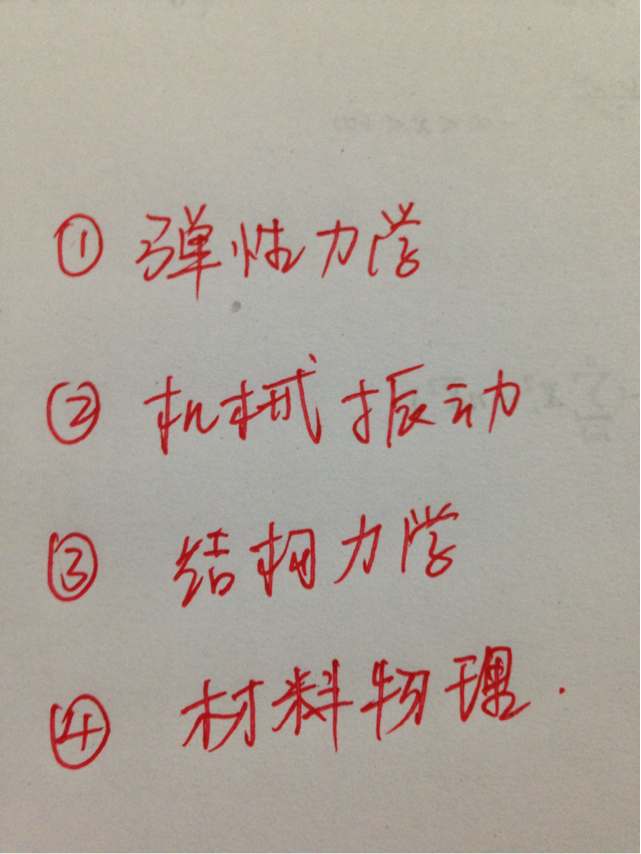 ① 弹性力学
② 机械振动
③ 结构力学
④ 材料物理.